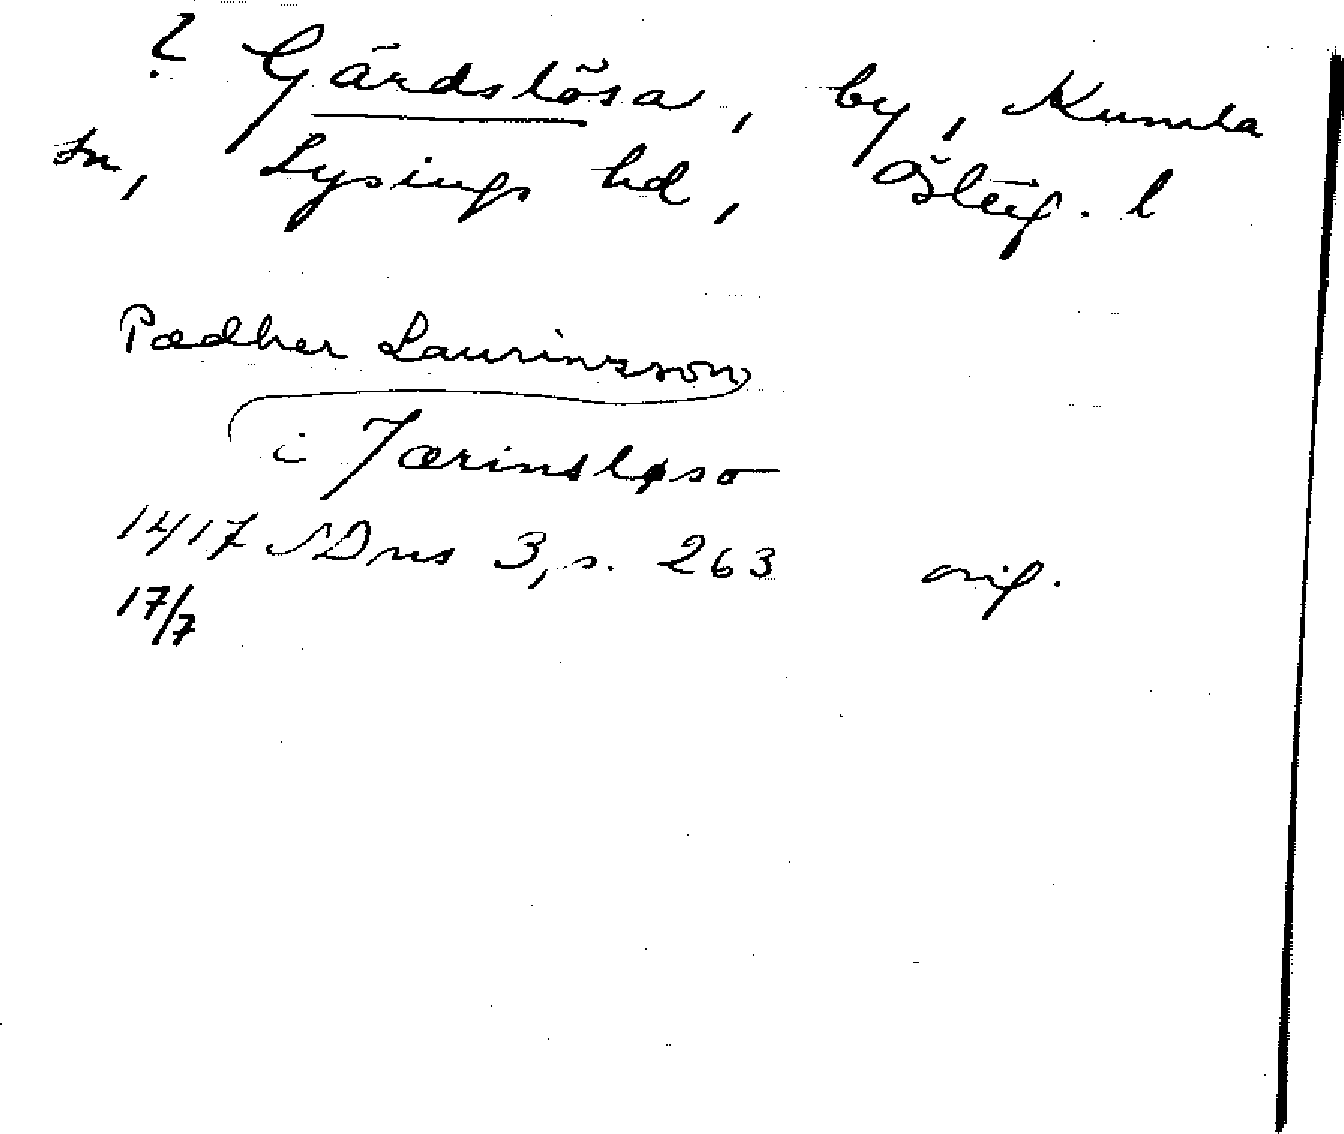 ? Gärdslösa, by, Kumla
sn, Lysings hd, Östg. l
Pædher Laurinzson
i Jærinsløso
1417 SDns 3, s. 263 orig.
17/7